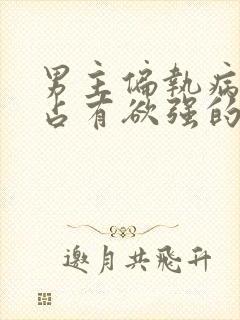 男主偏执病
占有欲强的
邀月共飞升